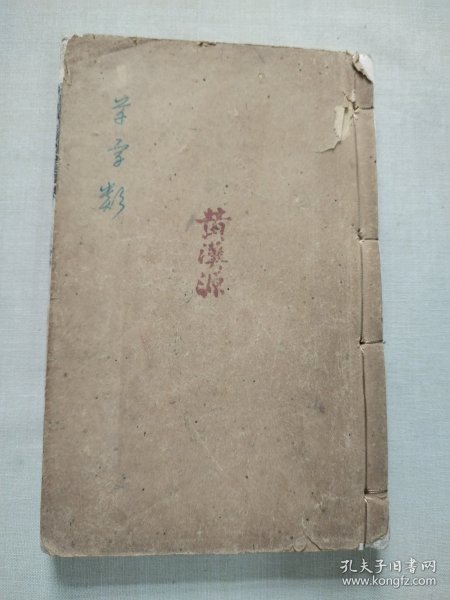 草字類
黄漢源
孔夫子旧书网
www.kongfz.com